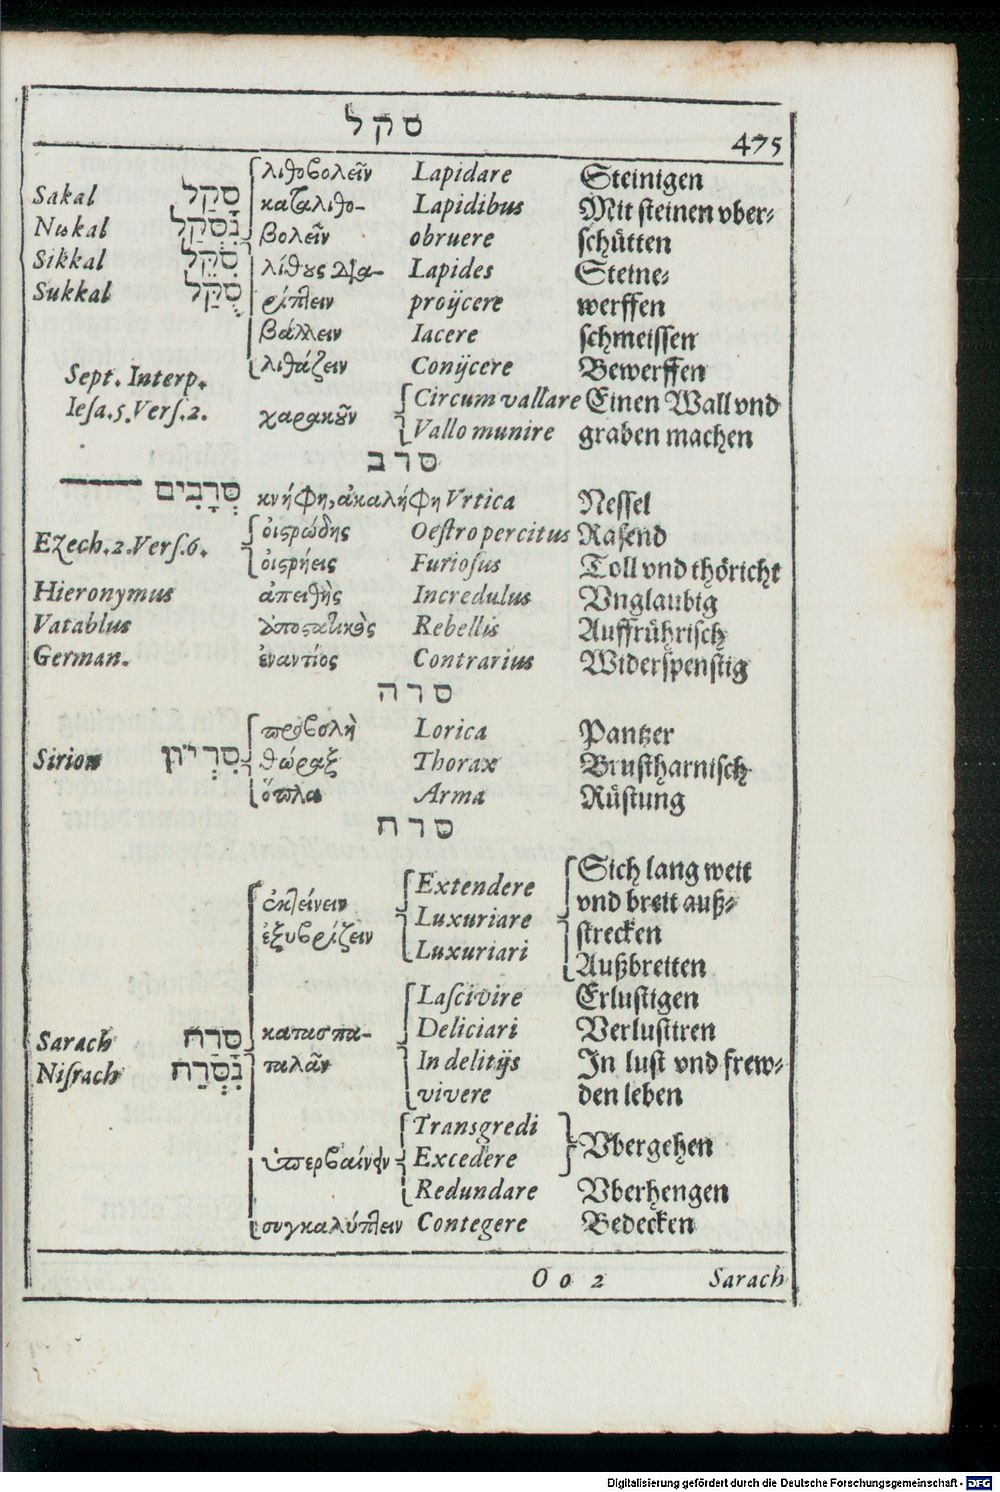 סקל
475
λιθοβολεῖν Lapidare Steinigen
Sakal סָקַל καταλιθο- Lapidibus Mit steinen vber-
Niskal נִסְקַל βολεῖν obruere schütten
Sikkal סִקֵּל λίθους ἀπα- Lapides Steine-
Sukkal סֻקַּל ρίπτειν proijcere werffen
βάλλειν Iacere schmeissen
λιθάζειν Conijcere Bewerffen
Sept. Interp.
Iesa.5.Vers.2. χαρακοῦν Circum vallare Einen Wall vnd
Vallo munire graben machen
סרב
סְרָבִים κνήφη, ἀκαλήφη Vrtica Nessel
οἰςρώδης Oestro percitus Rasend
Ezech.2.Vers.6. οἰςρήεις Furiosus Toll vnd thöricht
Hieronymus ἀπειθὴς Incredulus Vnglaubig
Vatablus ἀποςατικὸς Rebellis Auffrührisch
German. ἐναντίος Contrarius Widerspenstig
סרה
προβολὴ Lorica Pantzer
Sirion סִרְיוֹן θώραξ Thorax Brustharnisch
ὅπλα Arma Rüstung
סרח
Sich lang weit
ἐκτείνειν Extendere vnd breit auß-
ἐξυβρίζειν Luxuriare strecken
Luxuriari Außbreiten
Lascivire Erlustigen
Sarach סָרַח κατασπα- Deliciari Verlustiren
Nisrach נִסְרַח ταλᾶν In delitijs In lust vnd frew-
vivere den leben
Transgredi
ὑπερβαίνειν Excedere Vbergehen
Redundare Vberhengen
συγκαλύπτειν Contegere Bedecken
O o 2 Sarach
Digitalisierung gefördert durch die Deutsche Forschungsgemeinschaft - DFG